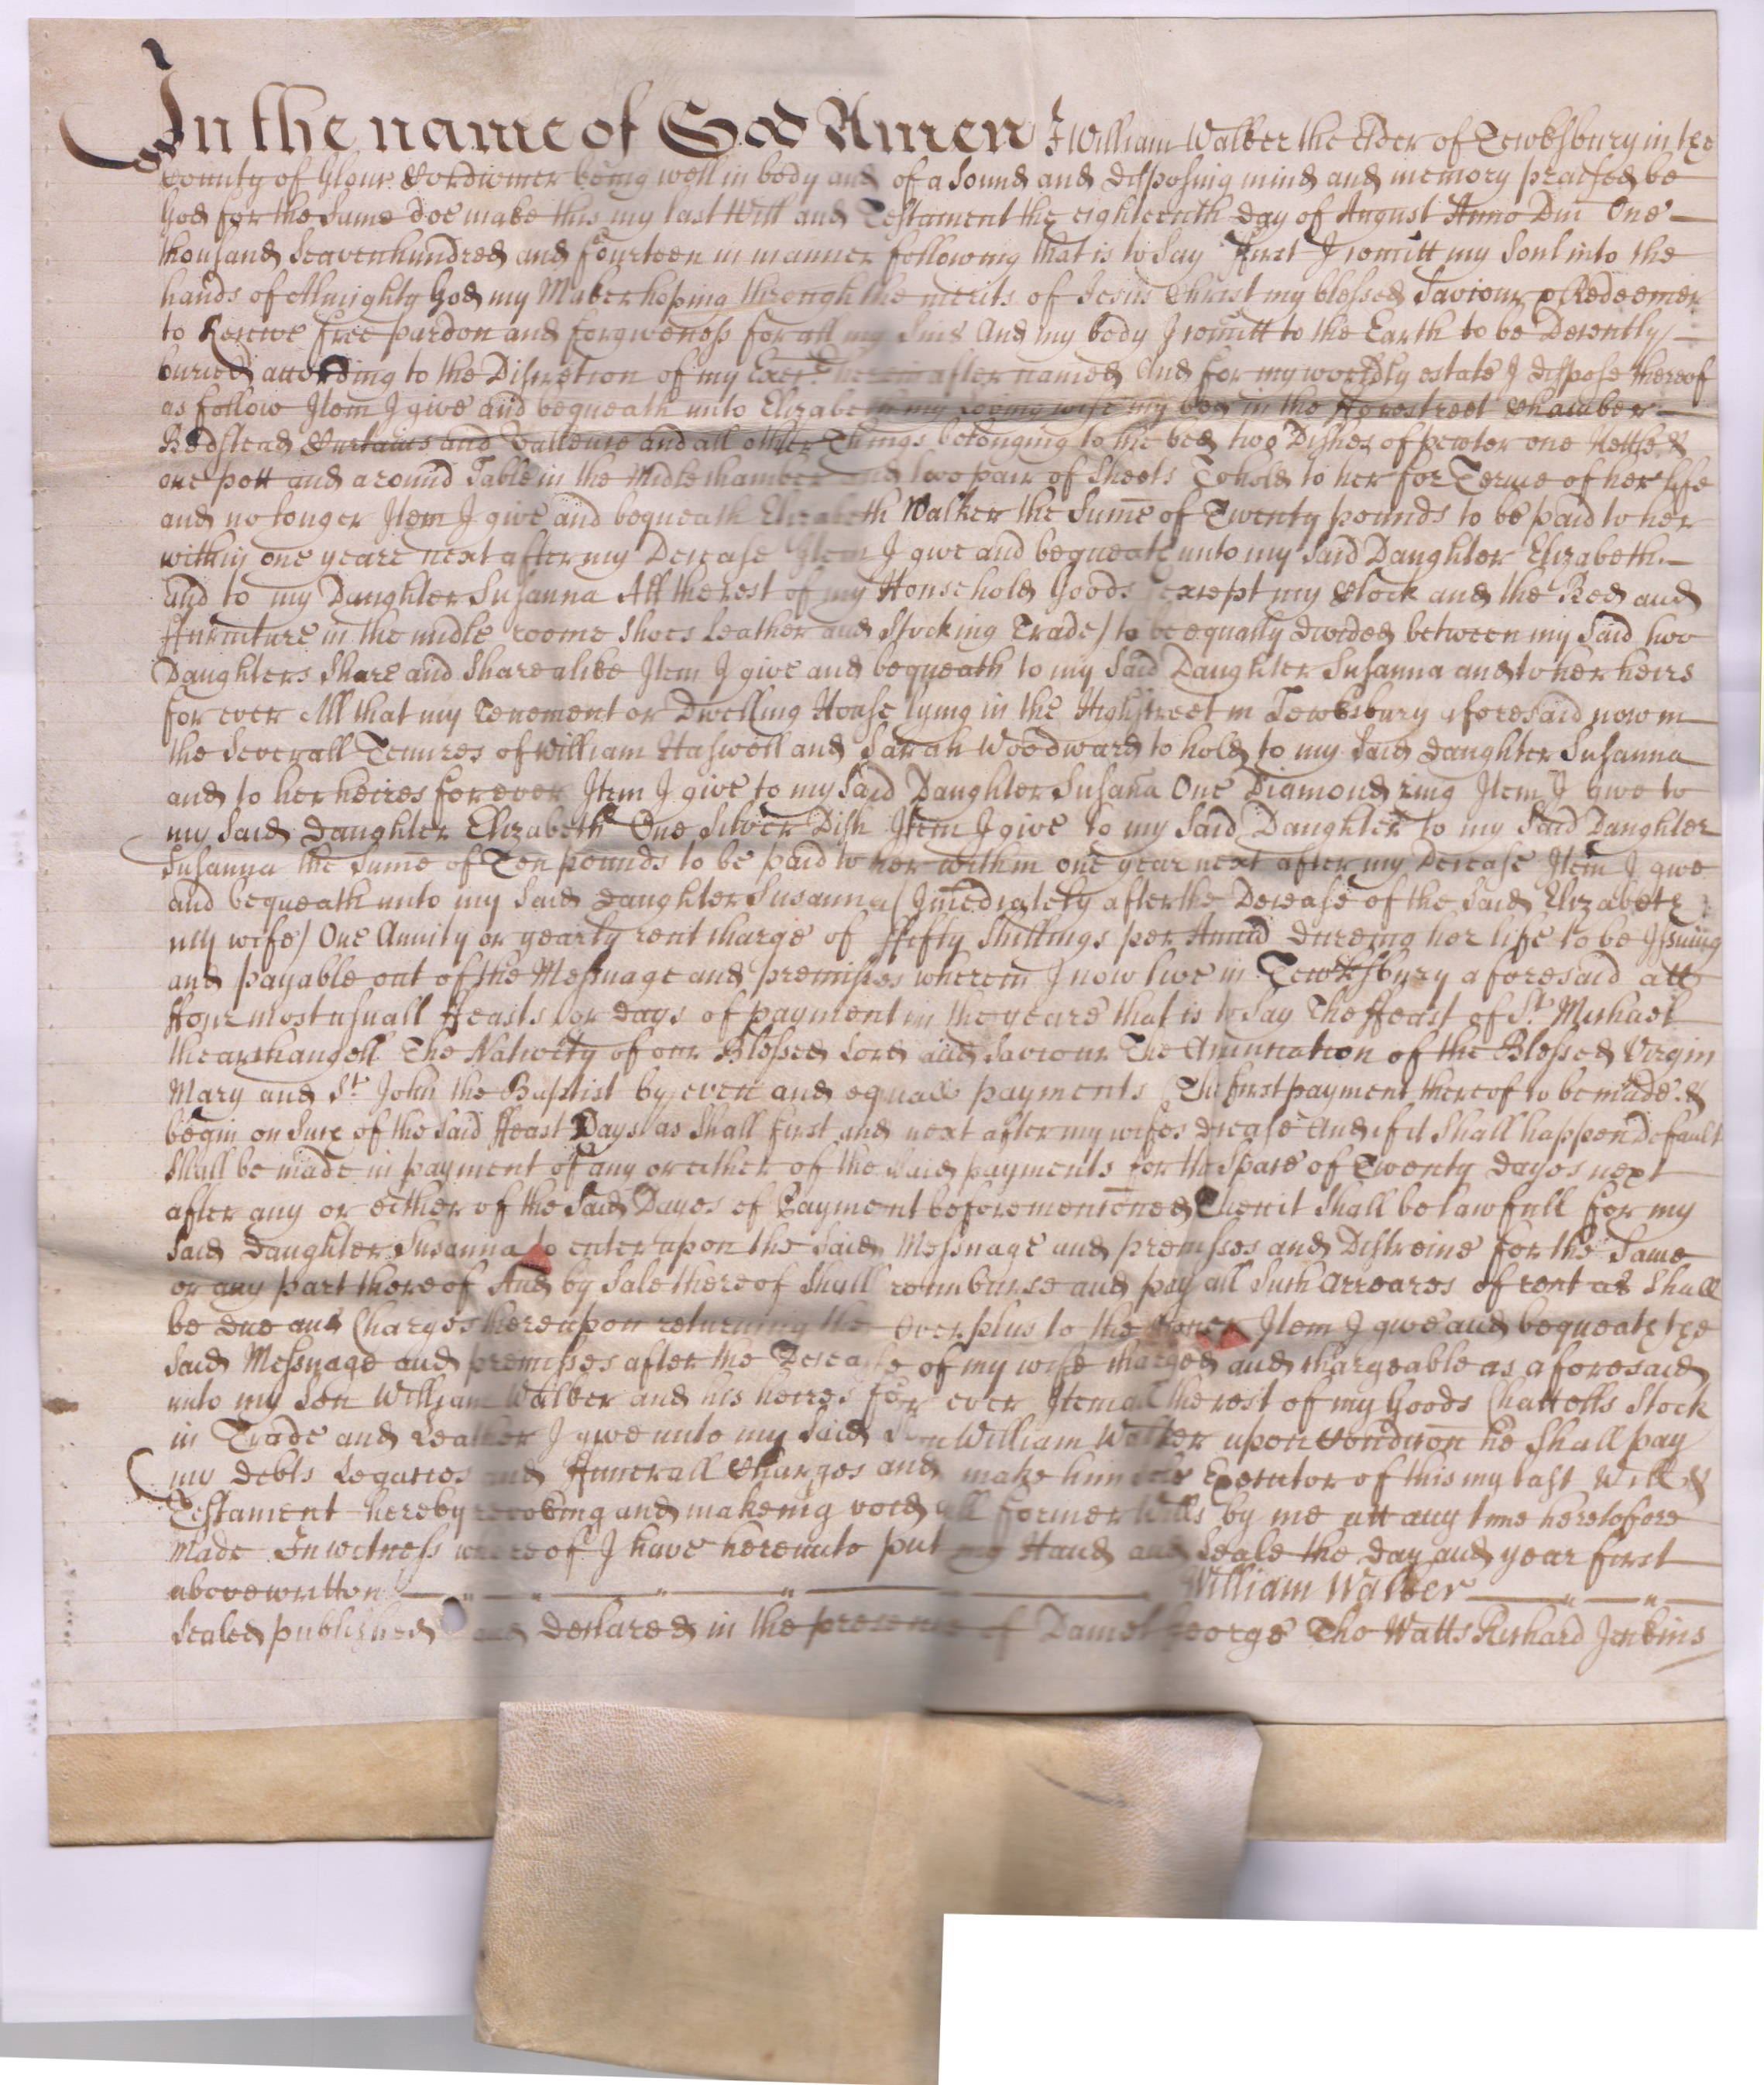 In the name of God Amen I William Walker the Elder of Tewksbury in the
County of Glouc Cordwiner being well in body and of a Sound and disposing mind and memory praised be
God for the Same doe make this my last Will and Testament the eighteenth day of August Anno Dni One
thousand Seavenhundred and fourteen in manner following that is to Say First I comitt my Soul into the
hands of Allmighty God my Maker hoping through the merits of Jesus Christ my blessed Saviour & Redeemer
to Receive free pardon and forgiveness for all my Sins And my body I comitt to the Earth to be Decently
buried according to the Discretion of my Execr herein after named And for my worldly estate I dispose thereof
as follow Item I give and bequeath unto Elizabeth my Loving wife my bed in the fforestreet Chamber
Bedstead Curtains and Vallence and all other Things belonging to the bed two Dishes of pewter one Kettle &
one pott and a round Table in the Midle chamber and two pair of Sheets To hold to her for Terme of her life
and no longer Item I give and bequeath Elizabeth Walker the Sume of Twenty pounds to be paid to her
within one yeare next after my Decease Item I give and bequeath unto my Said Daughter Elizabeth
and to my Daughter Susanna All the rest of my Household Goods (except my Clock and the Bed and
ffurniture in the midle roome Shoes Leather and Stocking Trade) to be equally devided between my Said two
Daughters Share and Share alike Item I give and bequeath to my Said Daughter Susanna and to her heirs
for ever All that my Tenement or Dwelling House lying in the Highstreet in Tewksbury aforesaid now in
the Severall Tenures of William Haswell and Sarah Woodward to hold to my Said daughter Susanna
and to her heires for ever Item I give to my Said Daughter Susana One Diamond ring Item I give to
my Said Daughter Elizabeth One Silver Dish Item I give to my Said Daughter to my Said Daughter
Susanna the Sume of Ten pounds to be paid to her within one year next after my Decease Item I give
and bequeath unto my Said daughter Susanna (Imediately after the Decease of the Said Elizabeth
my wife) One Anuity or yearly rent charge of ffifty Shillings per Annu dureing her life to be Issuing
and payable out of the Messuage and premisses wherein I now live in Tewksbury aforesaid att
ffour most usuall ffeasts or days of payment in the yeare that is to Say The ffeast of St Michael
the archangell The Nativity of our Blessed Lord and Saviour The Anunciation of the Blessed Virgin
Mary and St John the Baptist by even and equall payments The first payment thereof to be made &
begin on Such of the Said ffeast Days as Shall first and next after my wifes decease And if it Shall happen Default
Shall be made in payment of any or either of the Said payments for the Space of Twenty dayes next
after any or either of the Said Dayes of Payment beforementioned Then it Shall be lawfull for my
Said daughter Susanna to enter upon the Said Messuage and premisses and Distreine for the Same
or any part thereof And by Sale thereof Shall reimburse and pay all Such Arreares of rent as Shall
be due and Charges thereupon returning the Overplus to the Owner Item I give and bequeath the
Said Messuage and premisses after the Decease of my wife charged and chargeable as aforesaid
unto my Son William Walker and his heires for ever Item all the rest of my Goods Chattells Stock
in Trade and Leather I give unto my Said Son William Walker upon Condicon he Shall pay
my debts Legacies and ffunerall Charges and make him Sole Executor of this my last Will &
Testament hereby revoking and makeing void all former Wills by me att any time heretofore
Made In witness whereof I have hereunto put my Hand and Seale the day and year first
abovewritten William Walker
Sealed published and declared in the presence of Daniel George Tho Watts Richard Jenkins